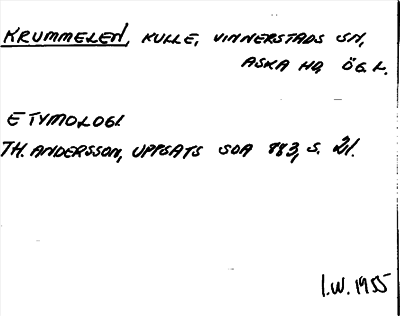 KRUMMELEN, KULLE, VINNERSTADS SN,
ASKA HD, ÖG. L.
ETYMOLOGI
TH. ANDERSSON, UPPSATS SOA 883, S. 21.
I.W. 1955